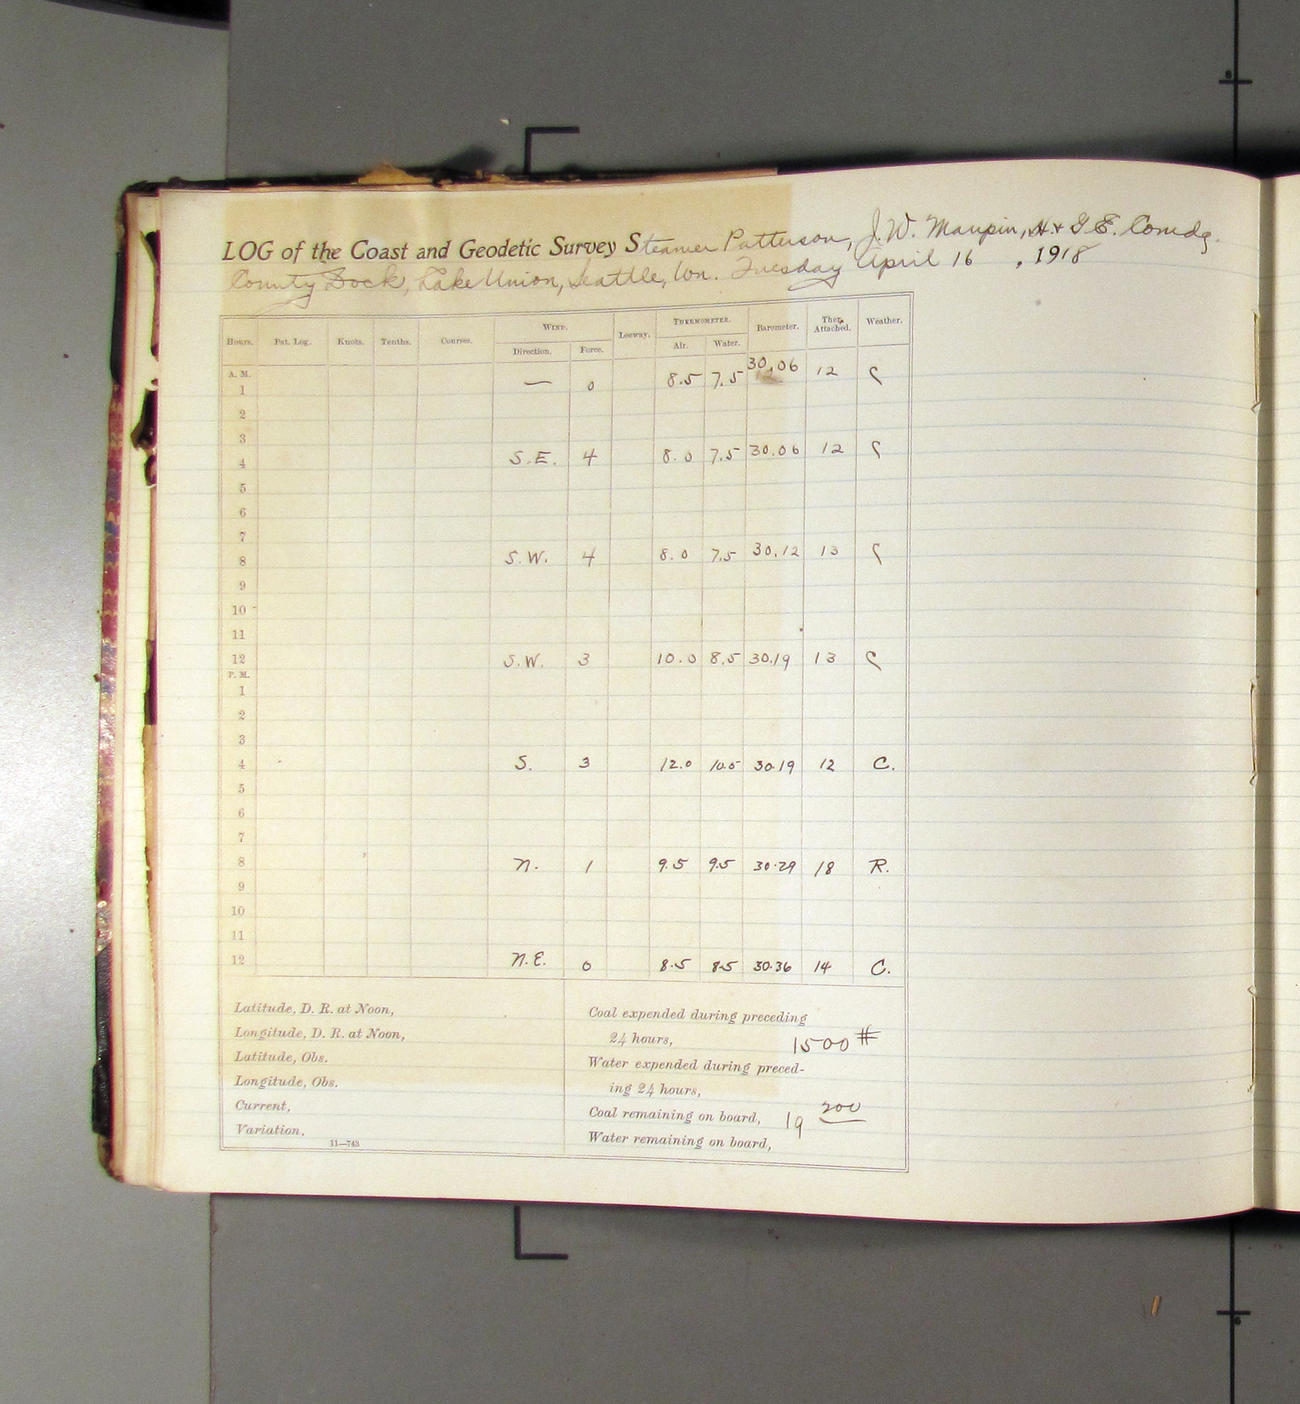 LOG of the Coast and Geodetic Survey Steamer Patterson, J.W. Maupin, H. & G. E. Comdg.
County Dock, Lake Union, Seattle, Wn. Tuesday April 16, 1918
Hours. Pat. Log. Knots. Tenths. Courses. WIND. Leeway. THERMOMETER. Barometer. Ther. Attached. Weather.
Direction. Force. Air. Water.
A. M.
1 — 0 8.5 7.5 30.06 12 C
2
3
4 S.E. 4 8.0 7.5 30.06 12 C
5
6
7
8 S.W. 4 8.0 7.5 30.12 13 C
9
10
11
12 S.W. 3 10.0 8.5 30.19 13 C
P. M.
1
2
3
4 S. 3 12.0 10.5 30.19 12 C.
5
6
7
8 N. 1 9.5 9.5 30.29 18 R.
9
10
11
12 N.E. 0 8.5 8.5 30.36 14 C.
Latitude, D. R. at Noon,
Longitude, D. R. at Noon,
Latitude, Obs.
Longitude, Obs.
Current,
Variation,
11—743
Coal expended during preceding
24 hours, 1500 #
Water expended during preced-
ing 24 hours,
Coal remaining on board, 19 200
Water remaining on board,
6
6